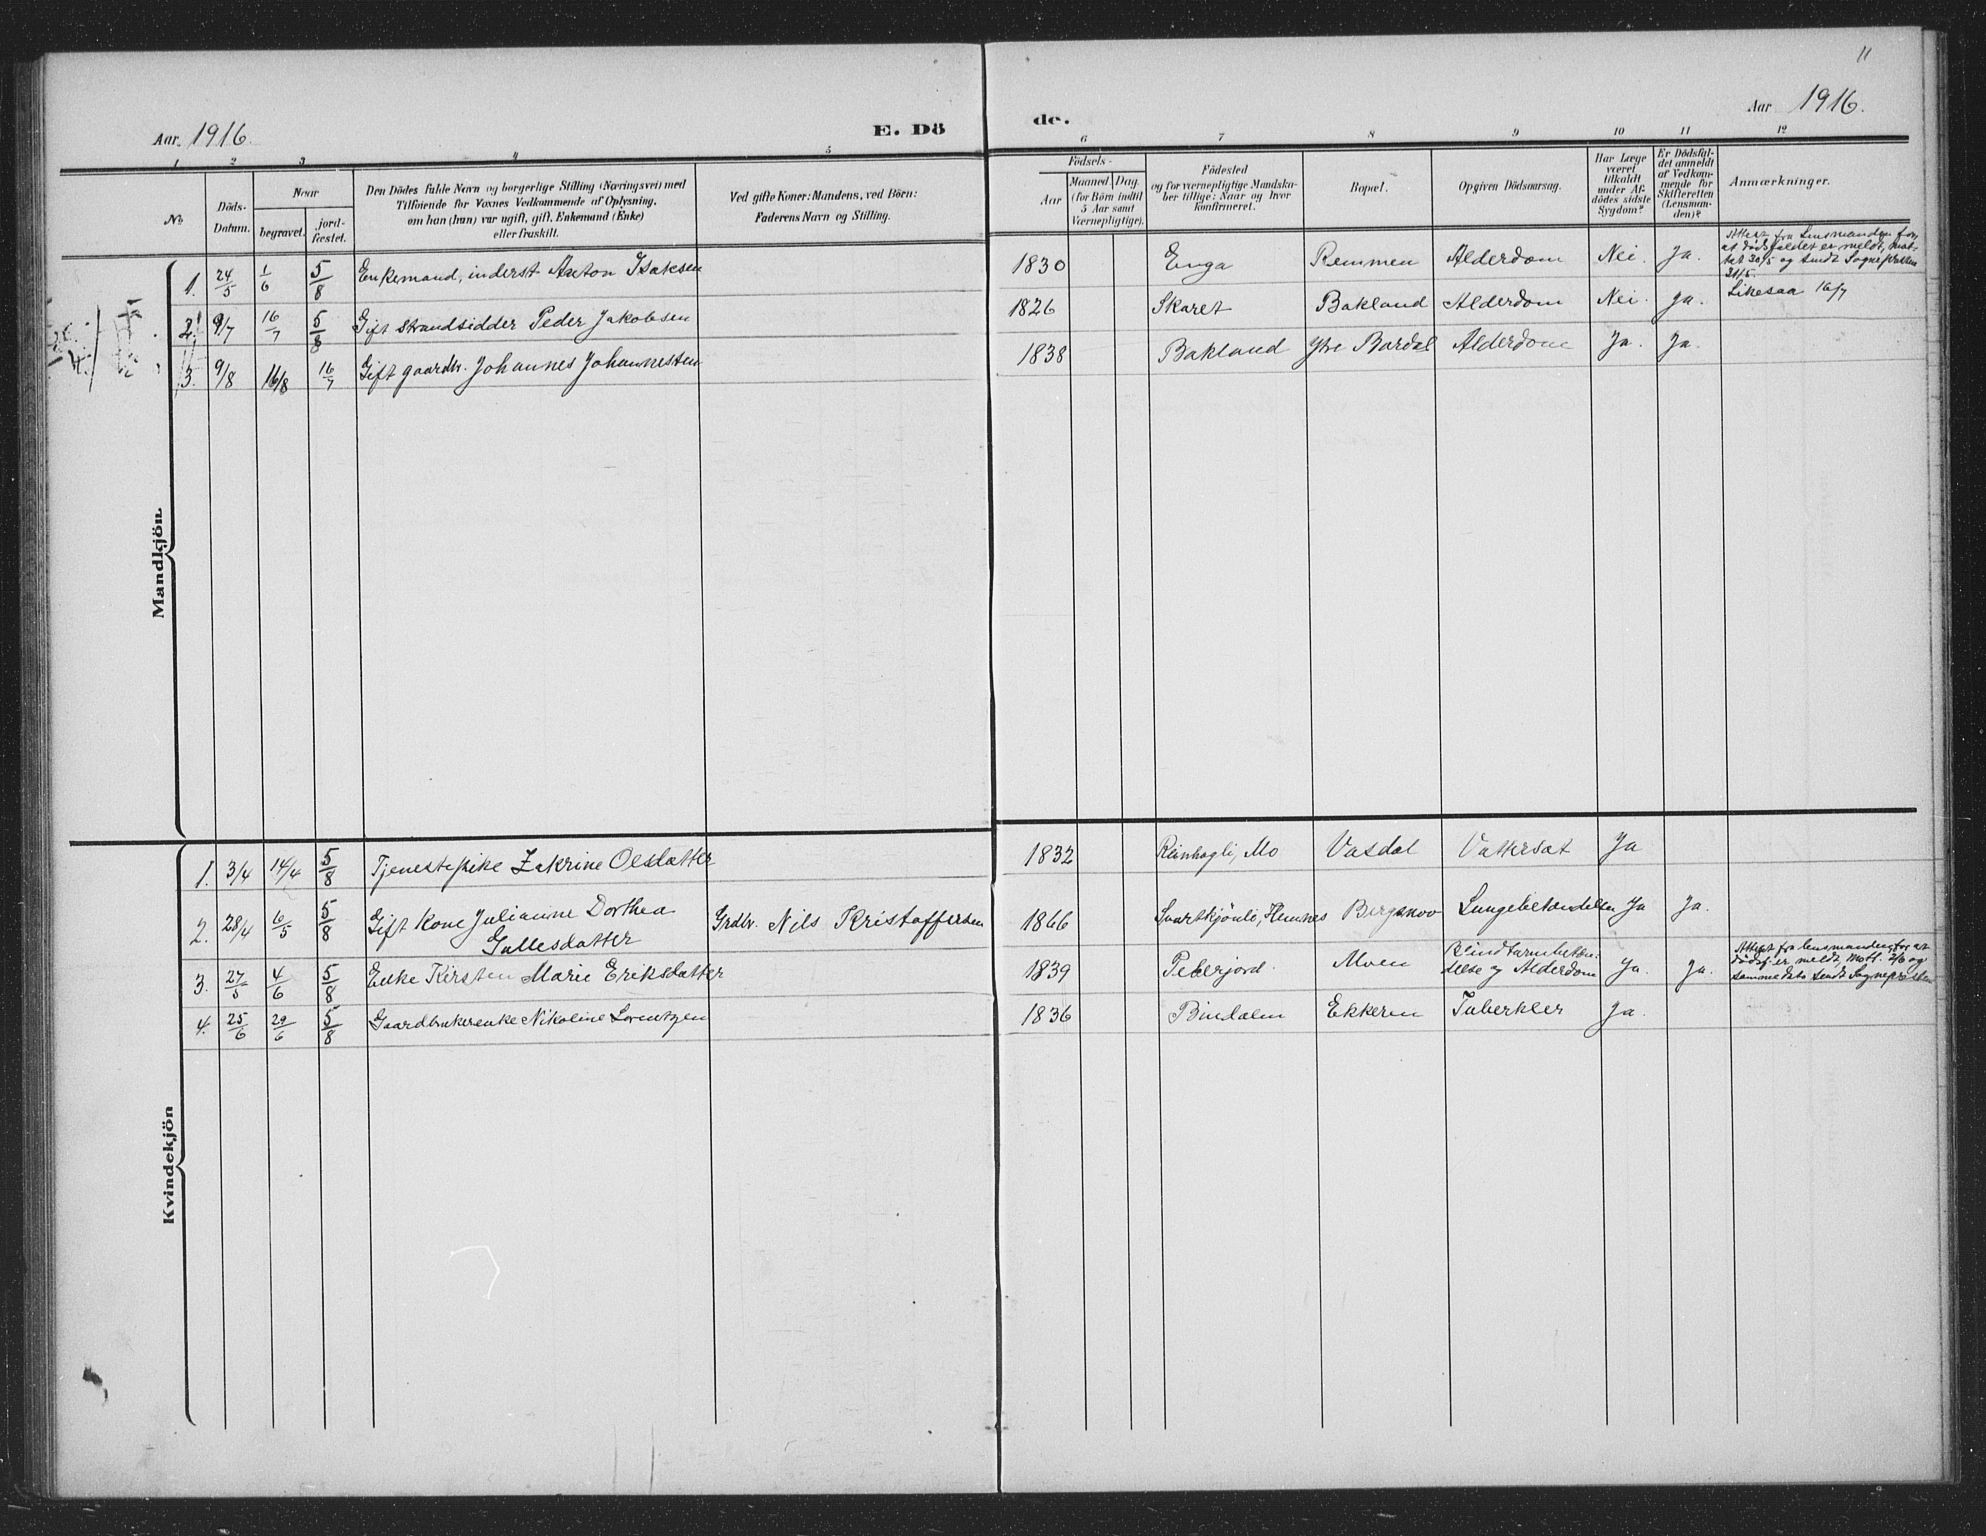 11
Aar 1916.
E. Dö
de.
Aar 1916.
1 2 3 4 5 6 7 8 9 10 11 12
No
Döds-
Datum.
Naar
begravet.
jord-
fæstet.
Den Dödes fulde Navn og borgerlige Stilling (Næringsvei) med
Tilföiende for Voxnes Vedkommende af Oplysning,
om han (hun) var ugift, gift, Enkemand (Enke)
eller fraskilt.
Ved gifte Koner: Mandens, ved Börn:
Faderens Navn og Stilling.
Födsels-
Aar
Maaned
Dag.
(for Börn indtil
5 Aar samt
Værnepligtige).
Födested
og for værnepligtige Mandska-
ber tillige: Naar og hvor
konfirmeret.
Bopæl.
Opgiven Dödsaarsag.
Har Læge
været
tilkaldt
under Af-
dödes sidste
Sygdom?
Er Dödsfal-
det anmeldt
af Vedkom-
mende for
Skifteretten
(Lensman-
den)?
Anmærkninger.
Mandkjön.
1. 24/5 1/6 5/8 Enkemand, inderst Anton Isaksen 1830 Enga Remmen Alderdom Nei. Ja. Attest fra Lensmanden for,
at dödsfaldet er meldt, mot-
tat 30/5 og sendt Sognepresten
31/5.
2. 9/7 16/7 5/8 Gift strandsidder Peder Jakobsen 1826 Skaret Bakland Alderdom Nei. Ja. Likesaa 16/7
3. 9/8 16/8 16/7 Gift gaardbr. Johannes Johannessen 1838 Bakland Ytre Bardal Alderdom Ja. Ja.
Kvindekjön
1. 3/4 14/4 5/8 Tjenestepike Zakrine Olsdatter 1832 Reinhagli, Mo Vasdal Vattersot Ja
2. 28/4 6/5 5/8 Gift Kone Julianne Dorthea
Gullesdatter Grdbr. Nils Kristoffersen 1866 Svartkjönli, Hemnes Bergsnov Lungebetændelse Ja Ja.
3. 27/5 4/6 5/8 Enke Kirsten Marie Eriksdatter 1839 Alven Blindtarmbetæn-
delse og Alderdom Ja. Ja. Attest fra lensmanden for at
dödsf. er meldt, mott. 2/6 og
samme dato sendt Sognepresten
4. 25/6 29/6 5/8 Gaardbrukerenke Nikoline Lorentzen 1836 Bindalen Ekkeren Tuberkler Ja.